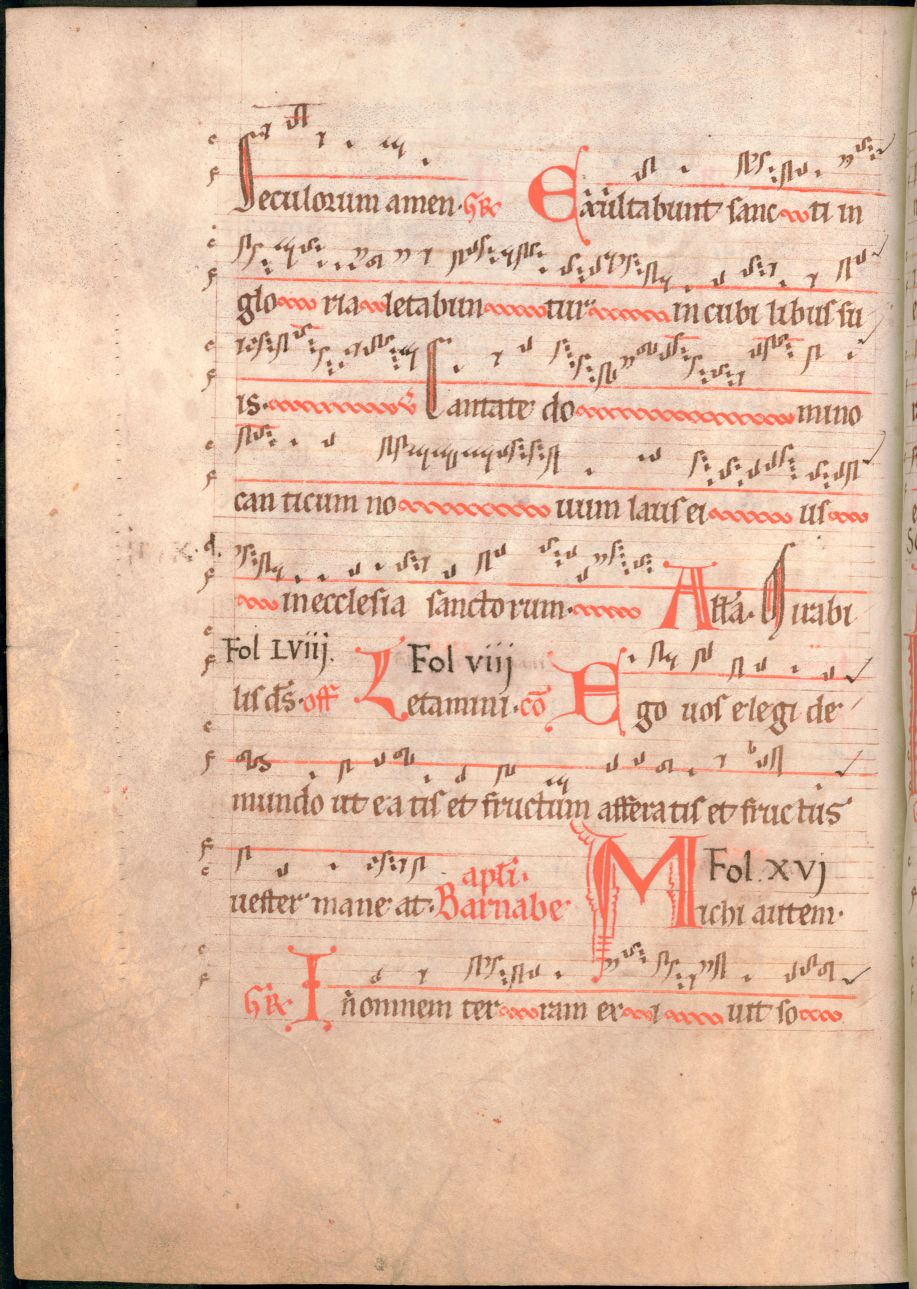 Seculorum amen. GR Exultabunt sancti in
gloria letabuntur in cubilibus su
is. V Cantate domino
canticum nouum laus eius
in ecclesia sanctorum. Affa. Mirabi
Fol LViij. Fol viij
lis ds. off Letamini. co Ego uos elegi de
mundo ut eatis et fructum afferatis et fructus
Fol. xvj
uester maneat. Barnabe apli. Michi autem.
GR In omnem terram exiuit so